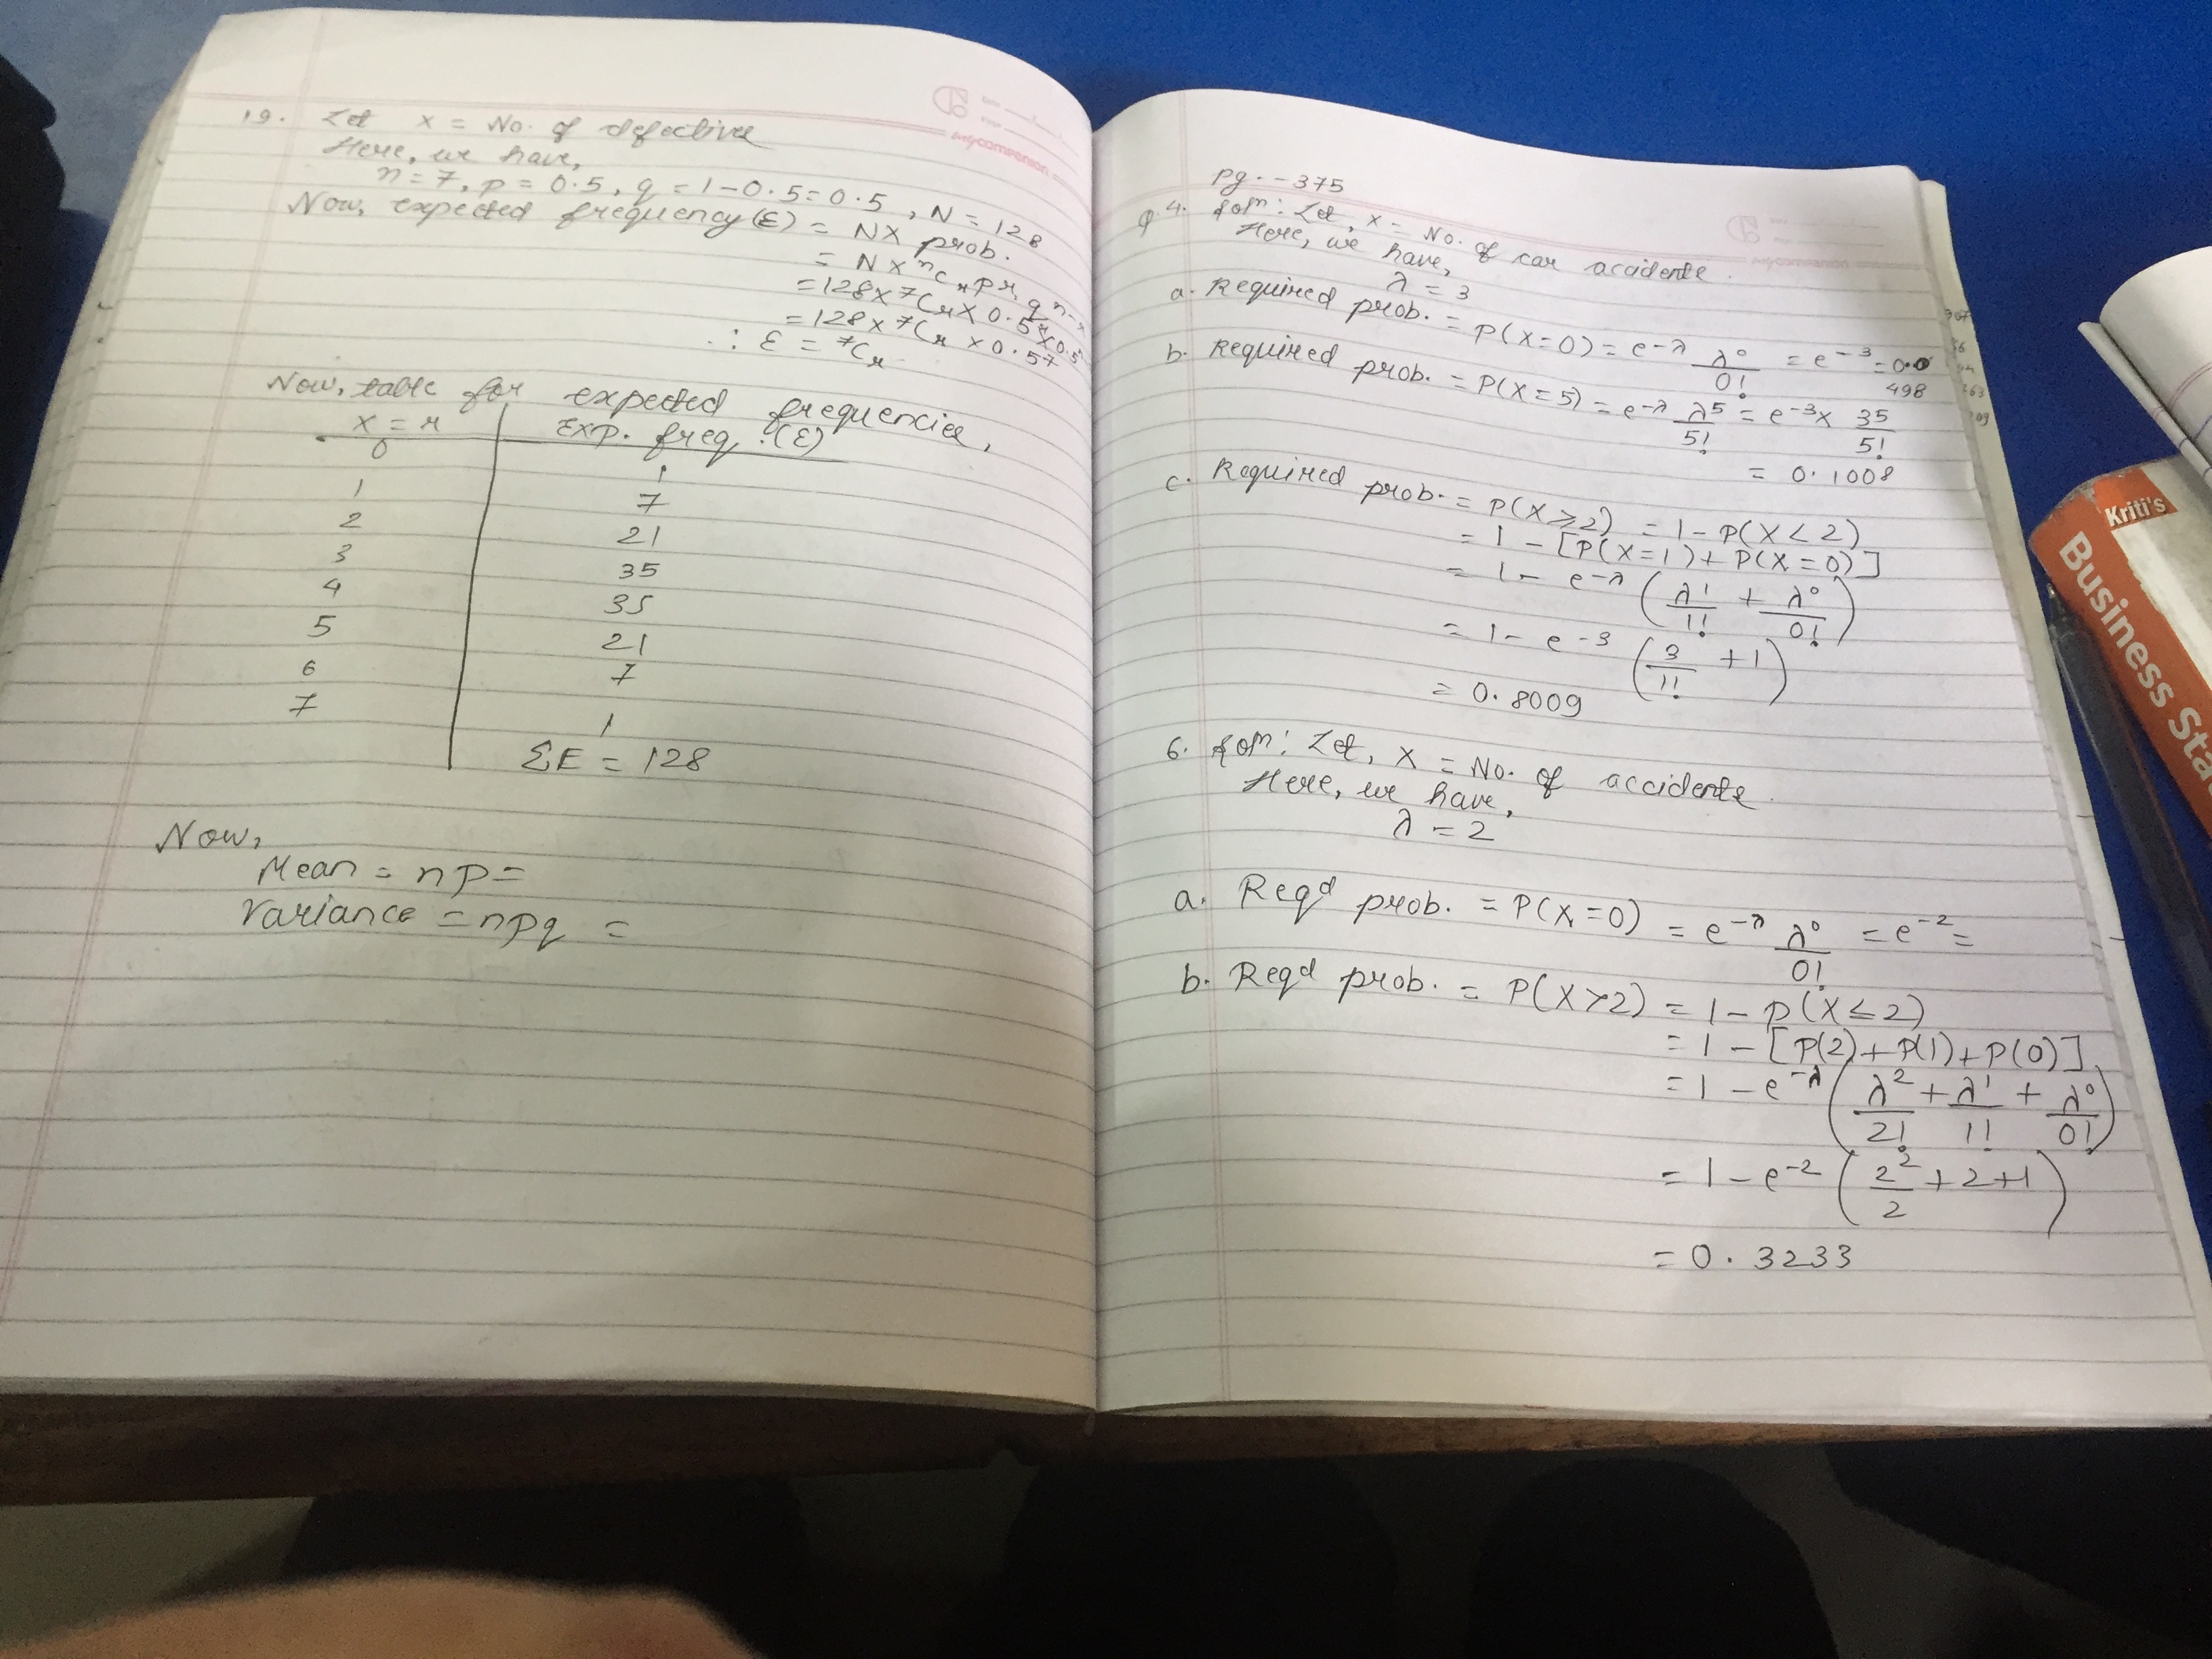 19. Let x = No. of defective
Here, we have,
n = 7, p = 0.5, q = 1 - 0.5 = 0.5, N = 128
Now, expected frequency (E) = N X prob.
= N X ⁿCᵣ pʳ qⁿ⁻ʳ
= 128 X ⁷Cᵣ X 0.5ʳ X 0.5
= 128 X ⁷Cᵣ X 0.5⁷
∴ E = ⁷Cᵣ
Now, table for expected frequencies,
x = r Exp. freq. (E)
0 1
1 7
2 21
3 35
4 35
5 21
6 7
7 1
ΣE = 128
Now,
Mean = np =
Variance = npq =
mycompanion
Pg. - 375
Q.4. Solⁿ: Let, x = No. of car accidents.
Here, we have,
λ = 3
a. Required prob. = P(X=0) = e^-λ λ⁰/0! = e⁻³ = 0.0
498
b. Required prob. = P(X=5) = e^-λ λ⁵/5! = e⁻³ x 3⁵/5!
= 0.1008
c. Required prob. = P(X ≥ 2) = 1 - P(X < 2)
= 1 - [P(X=1) + P(X=0)]
= 1 - e^-λ (λ¹/1! + λ⁰/0!)
= 1 - e⁻³ (3/1! + 1)
= 0.8009
6. Solⁿ: Let, X = No. of accidents.
Here, we have,
λ = 2
a. Reqd prob. = P(X=0) = e^-λ λ⁰/0! = e⁻² =
b. Reqd prob. = P(X>2) = 1 - P(X ≤ 2)
= 1 - [P(2) + P(1) + P(0)]
= 1 - e^-λ (λ²/2! + λ¹/1! + λ⁰/0!)
= 1 - e⁻² (2²/2 + 2 + 1)
= 0.3233
mycompanion
Kriti's
Business Sta